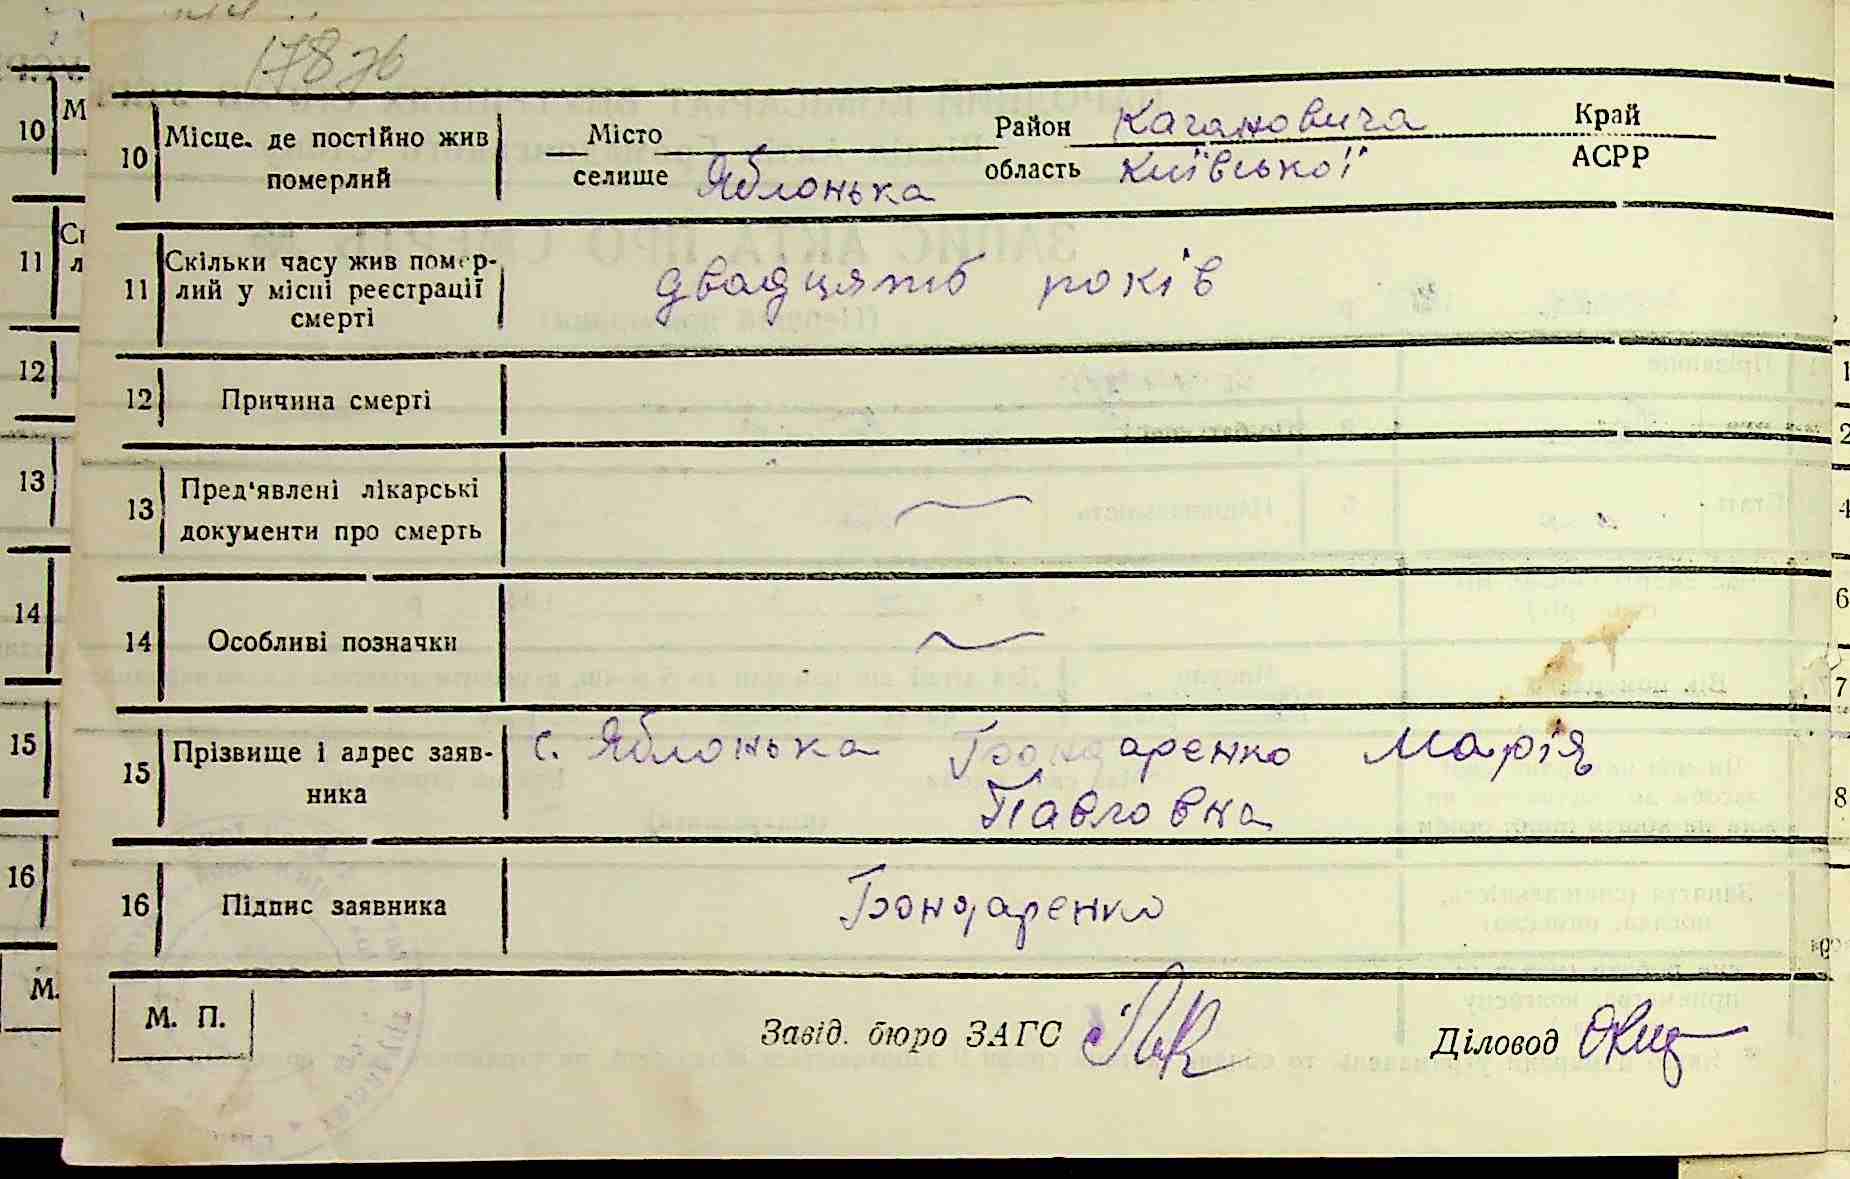 178 зв
10 Місце, де постійно жив померлий Місто селище Яблонька Район Кагановича область Київської Край АСРР
11 Скільки часу жив помер-
лий у місці реєстрації
смерті двадцять років
12 Причина смерті
13 Пред'явлені лікарські
документи про смерть
14 Особливі позначки
15 Прізвище і адрес заяв-
ника с. Яблонька Бондаренко Марія
Павловна
16 Підпис заявника Бондаренко
М. П. Завід. бюро ЗАГС Діловод